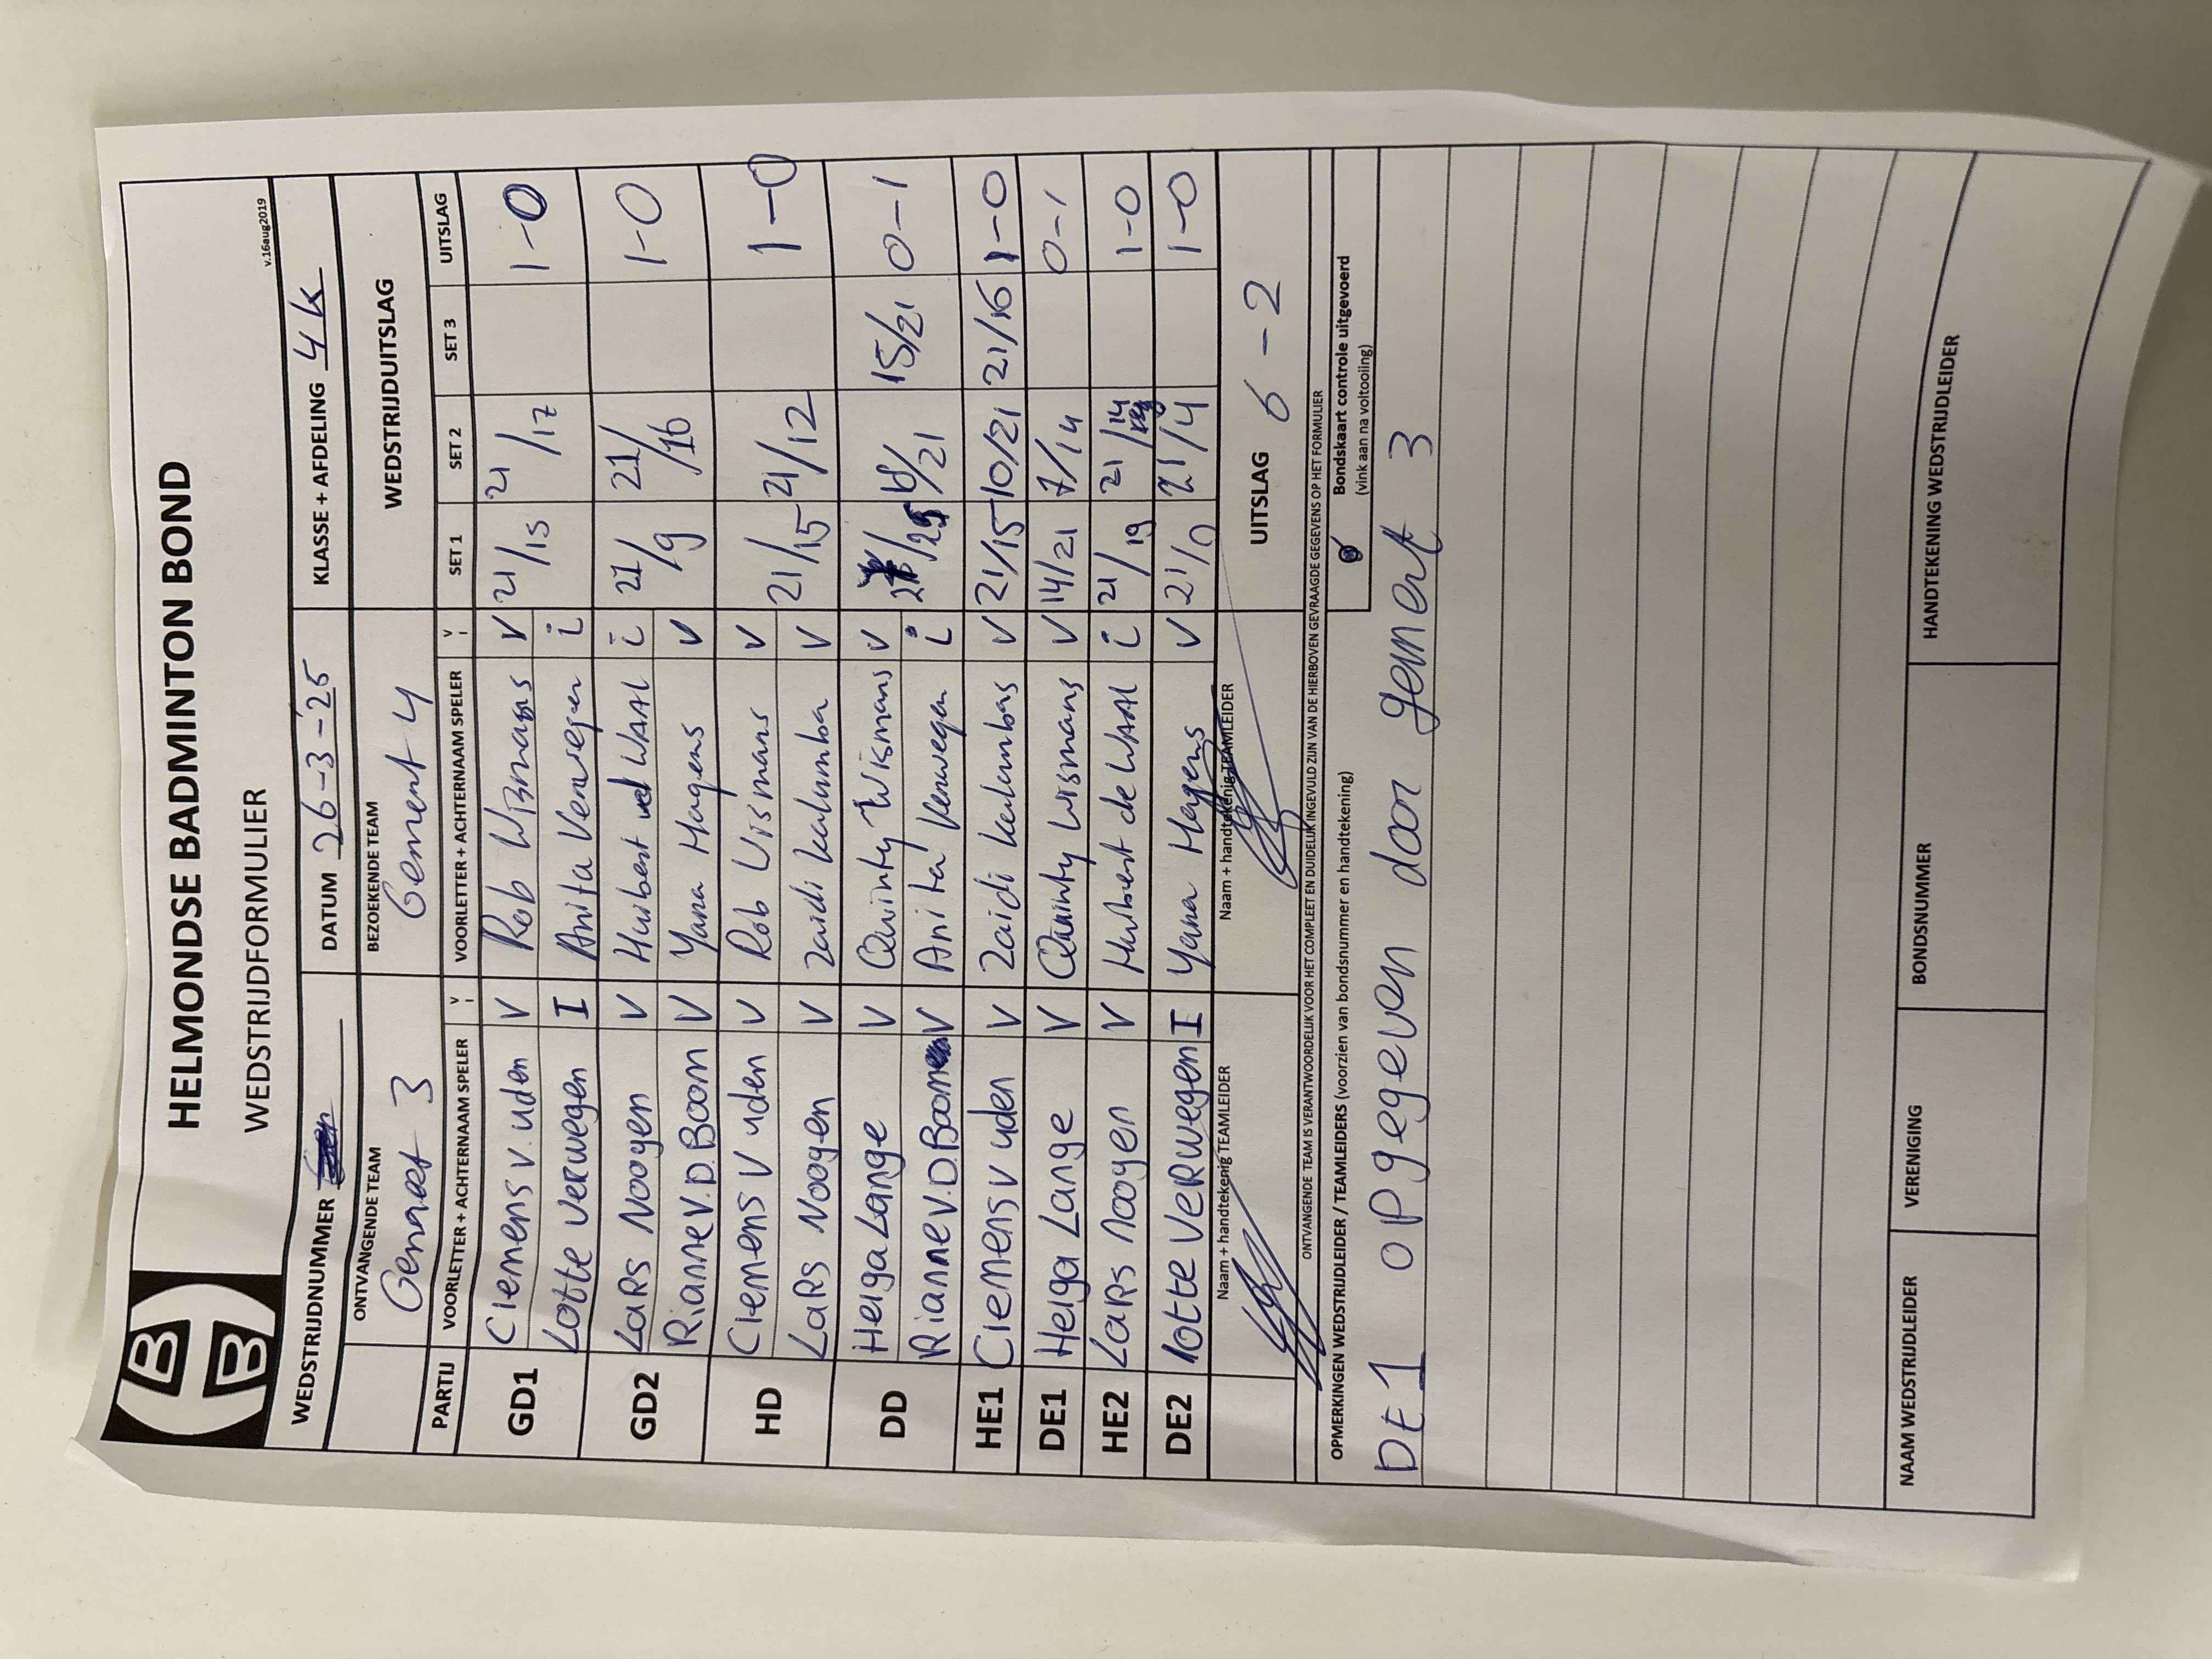 HELMONDSE BADMINTON BOND
WEDSTRIJDFORMULIER
v.16aug2019
WEDSTRIJDNUMMER DATUM 26-3-'25 KLASSE + AFDELING 4K
ONTVANGENDE TEAM BEZOEKENDE TEAM WEDSTRIJDUITSLAG
Gemert 3 Gemert 4
PARTIJ VOORLETTER + ACHTERNAAM SPELER V I VOORLETTER + ACHTERNAAM SPELER V I SET 1 SET 2 SET 3 UITSLAG
GD1 Clemens v. uden V Rob Wismans V 21/15 21/17 1-0
Lotte Verwegen I Anita Verwegen i
GD2 Lars Nooyen V Huibert de WAAL i 21/9 21/16 1-0
Rianne V.D. Boom V Yana Hagens V
HD Clemens V uden V Rob Wismans V 21/15 21/12 1-0
Lars Nooyen V Zaidi kalumba V
DD Helga Lange V Quinty Wismans V /21 15/21 0-1
Rianne V.D. Boom V Anita Verwegen i
HE1 Clemens V uden V Zaidi kalumba V 21/15 10/21 21/16 1-0
DE1 Helga Lange V Quinty Wismans V 14/21 7/14 0-1
HE2 Lars Nooyen V Huibert de WAAL i 21/19 21/14 1-0
DE2 lotte Verwegen I Yana Hagens V 21/0 21/4 1-0
Naam + handtekenig TEAMLEIDER Naam + handtekenig TEAMLEIDER UITSLAG 6-2
ONTVANGENDE TEAM IS VERANTWOORDELIJK VOOR HET COMPLEET EN DUIDELIJK INGEVULD ZIJN VAN DE HIERBOVEN GEVRAAGDE GEGEVENS OP HET FORMULIER
OPMERKINGEN WEDSTRIJDLEIDER / TEAMLEIDERS (voorzien van bondsnummer en handtekening) Bondskaart controle uitgevoerd
(vink aan na voltooiing)
DE1 opgegeven door gemert 3
NAAM WEDSTRIJDLEIDER VERENIGING BONDSNUMMER HANDTEKENING WEDSTRIJDLEIDER